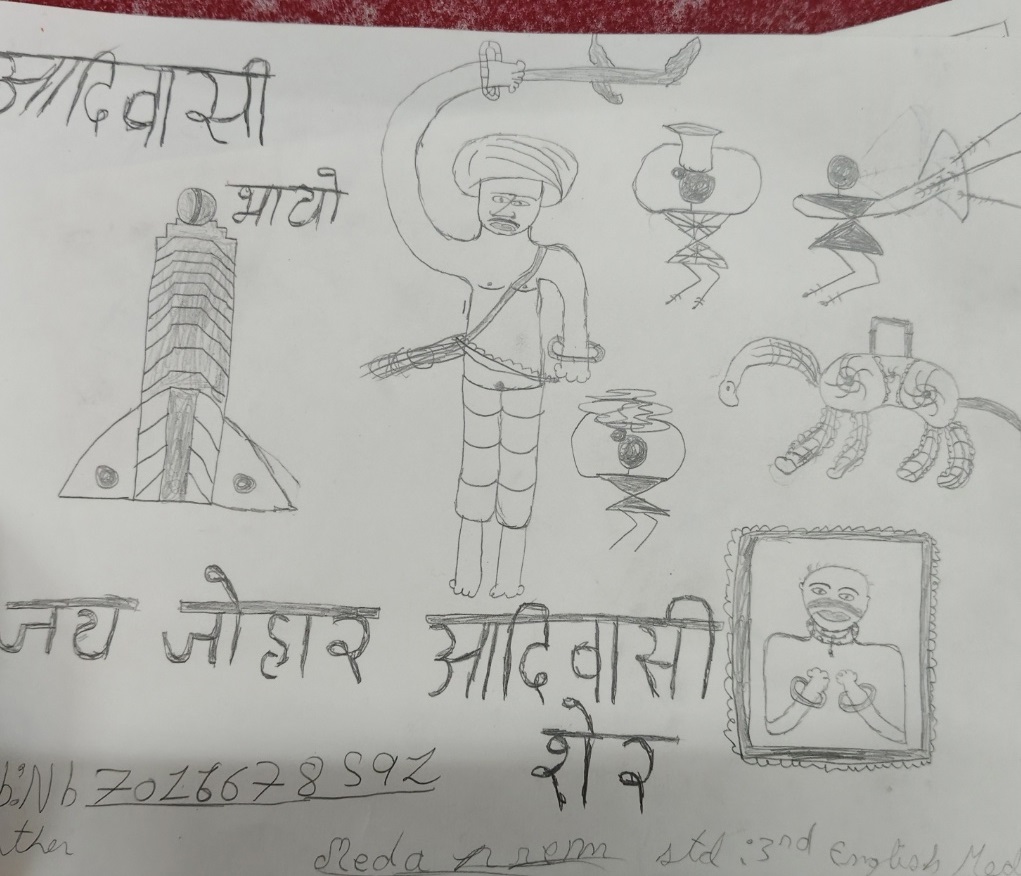 आदिवासी
भायो
जय जोहार आदिवासी
शेर
b:Nb 7016678592
ther
Meda std : 3rd English Med